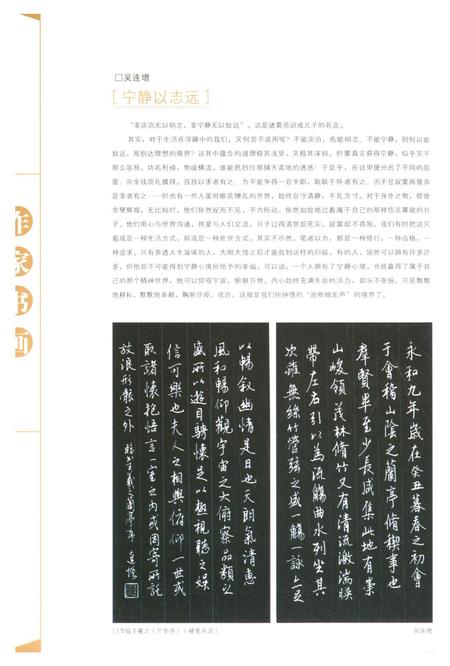 □吴连增
[宁静以志远]
“非淡泊无以明志，非宁静无以致远”。这是诸葛亮训戒儿子的名言。
其实，对于生活在浮躁中的我们，又何尝不适用呢？不能淡泊，焉能明志；不能宁静，则何以能
致远，焉到达理想的境界？这其中蕴含的道理极其浅显，又极其深刻。但要真正获得宁静，似乎又不
那么容易。功名利禄，物欲横流，谁能抵挡住那铺天盖地的诱惑！于是乎，在这里便分出了不同的层
面：向金钱顶礼膜拜，孜孜以求者有之；为不能争得一官半职，耿耿于怀者有之；因不甘寂寞而搔弄
是非者有之……但也有一些人面对眼花缭乱的世界，始终自守清静，不乱方寸。对于身外之物，即使
金壁辉煌，无比灿烂，他们依然视而不见，不为所动，依然如故地过着属于自己的那种恬淡寡欲的日
子。他们用心与世界沟通，用爱与人们交流。日子过得清贫却充实，寂寞却不孤独。我们有时把这只
看成是一种生活方式，抑或是一种处世方式。其实不尽然。笔者以为，那是一种修行，一种品格，一
种追求。只有参透人生滋味的人，大彻大悟之后才能找到这样的归宿。有的人，固然可以拥有许多许
多，但他却不可能得到宁静心境所给予的幸福。可以说，一个人拥有了宁静心境，也就赢得了属于自
己的那个精神世界，他可以仰观宇宙，俯察万物，内心始终充满生命的活力，却从不张扬，只是默默
地耕耘，默默地奉献，鞠躬尽瘁。或许，这就是我们所钟情的“润物细无声”的境界了。
作家书画
永和九年岁在癸丑暮春之初會
于會稽山陰之蘭亭脩稧事也
羣賢畢至少長咸集此地有崇
山峻領茂林脩竹又有清流激湍暎
帶左右引以為流觴曲水列坐其
次雖無絲竹管弦之盛一觴一詠上足
以暢叙幽情是日也天朗氣清惠
風和暢仰觀宇宙之大俯察品類之
盛所以遊目騁懷足以極視聽之娛
信可樂也夫人之相與俯仰一世或
取諸懷抱悟言一室之内或因寄所託
放浪形骸之外 臨王羲之蘭亭序 連增
□节临王羲之《兰亭序》（硬笔书法）
吴连增